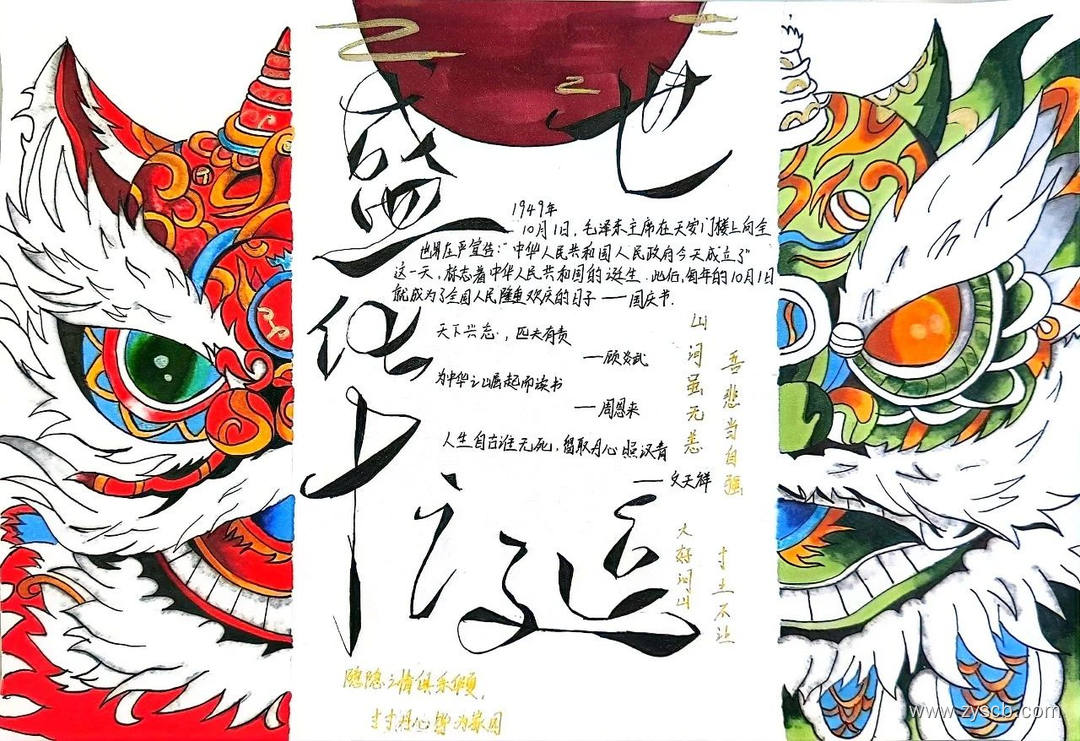 盛世
华诞
1949年
10月1日，毛泽东主席在天安门楼上向全
世界庄严宣告：“中华人民共和国人民政府今天成立了”
这一天，标志着中华人民共和国的诞生．此后，每年的10月1日
就成为了全国人民隆重欢庆的日子——国庆节．
天下兴志，匹夫有责
——顾炎武
为中华之崛起而读书
——周恩来
人生自古谁无死，留取丹心照汉青
——文天祥
山河虽无恙
吾悲当自强
大好河山
寸土不让
隐隐之情俱乐
寸寸丹心皆为家国
www.zyscb.com